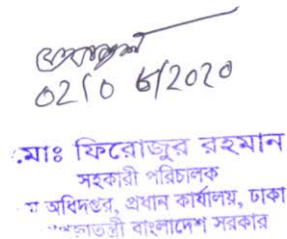 02/06/2020
মোঃ ফিরোজুর রহমান
সহকারী পরিচালক
অধিদপ্তর, প্রধান কার্যালয়, ঢাকা
বাংলাদেশ সরকার